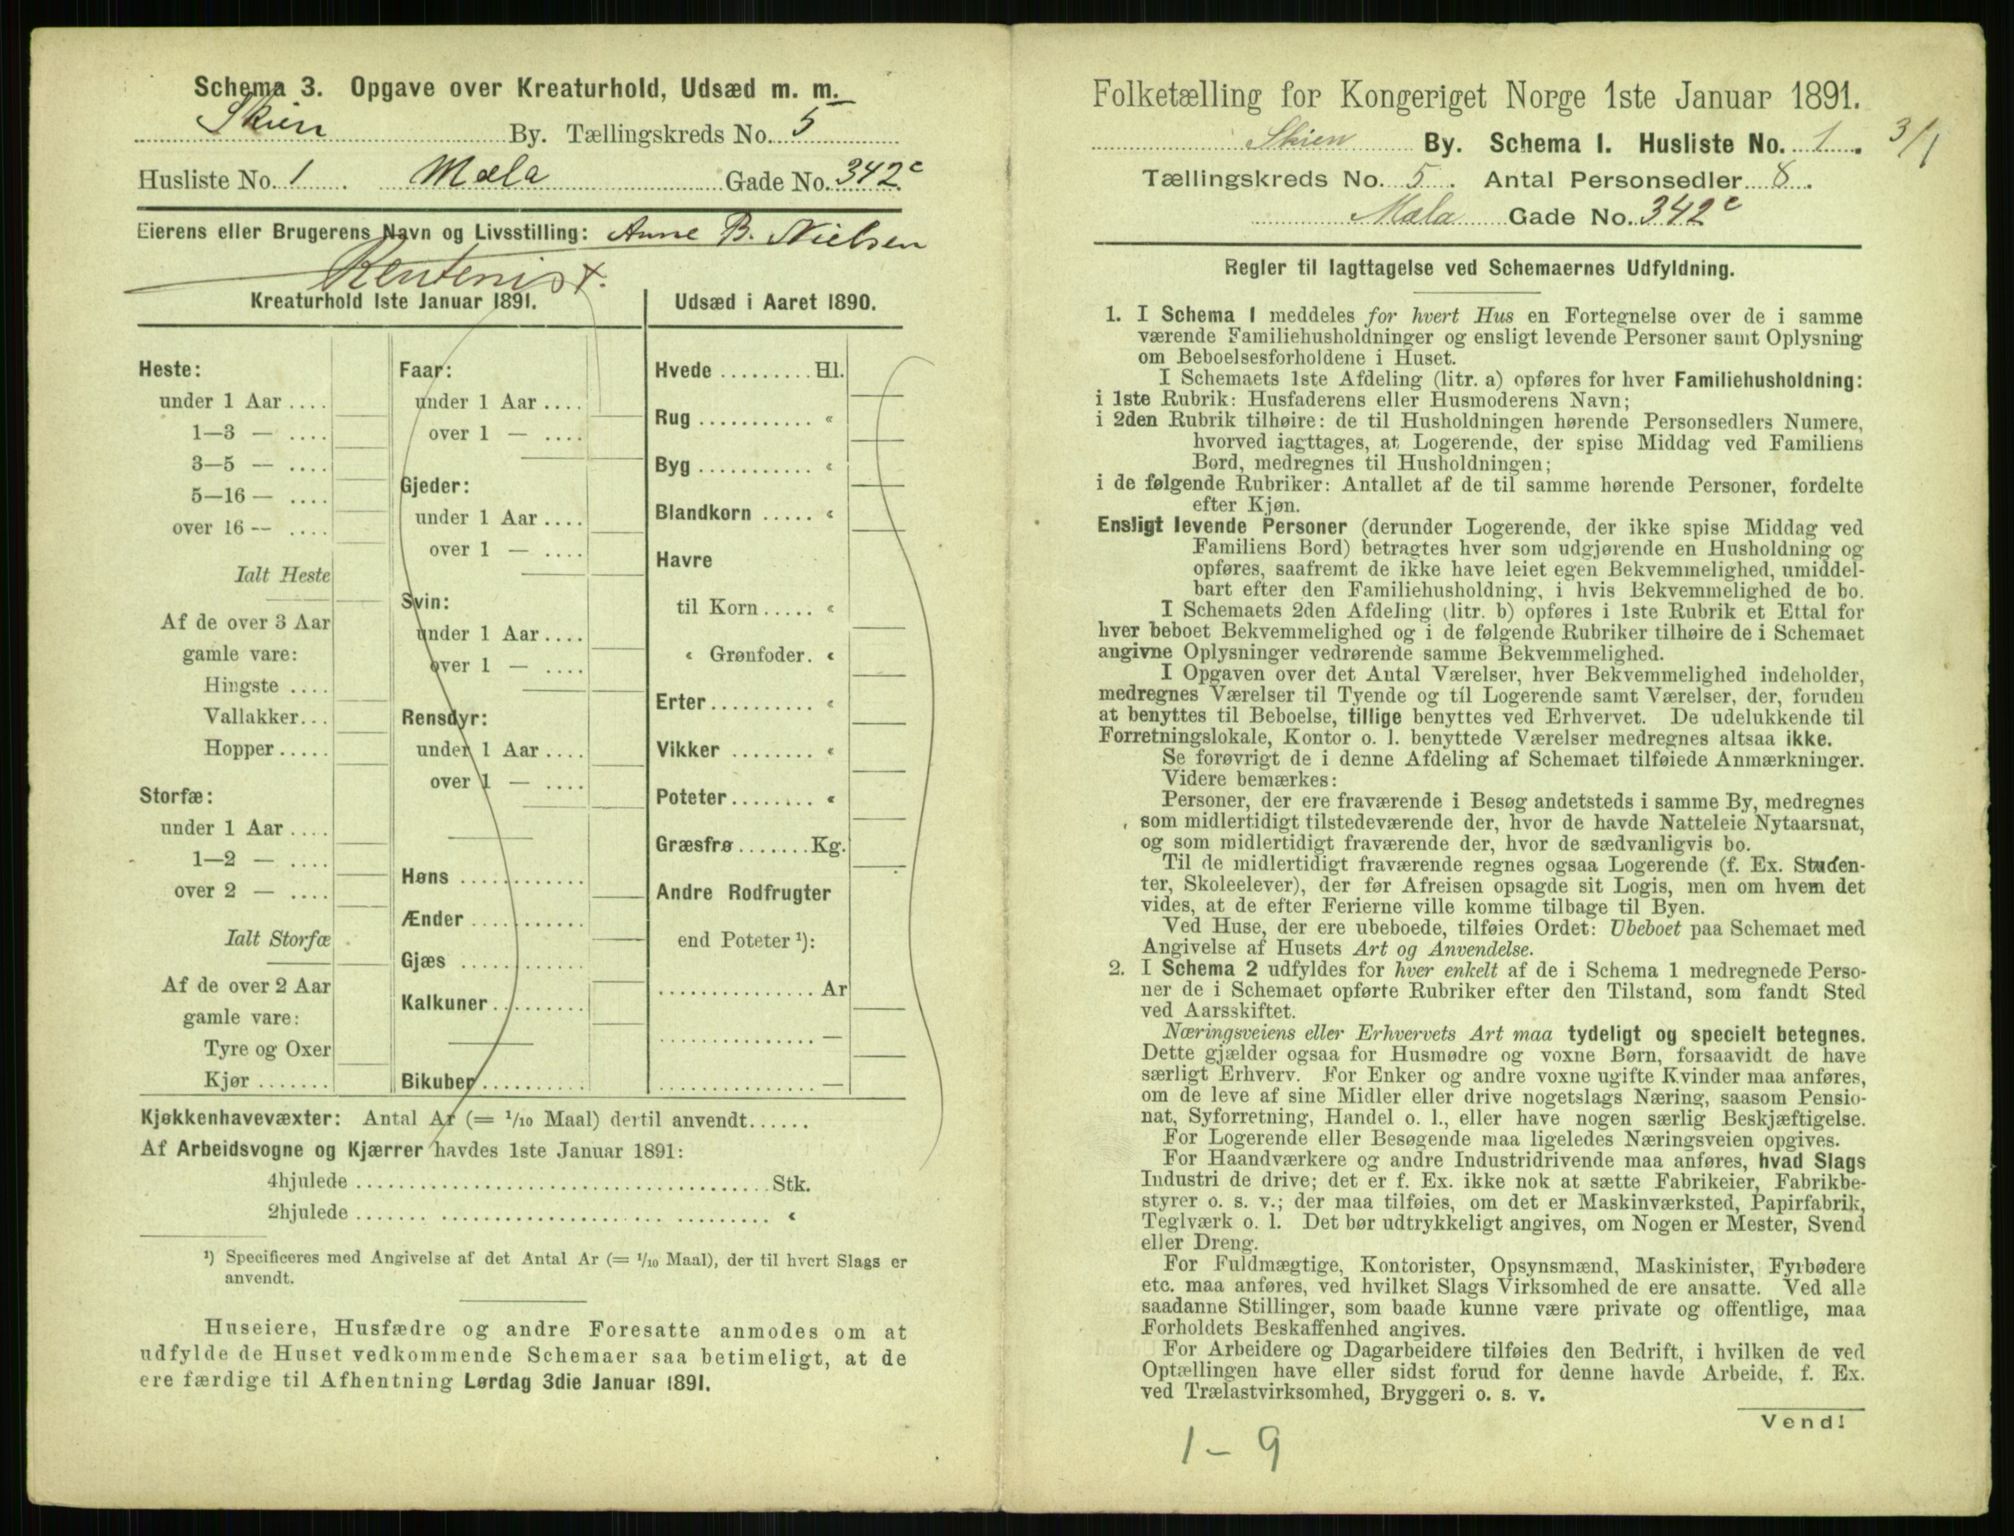 Schema 3. Opgave over Kreaturhold, Udsæd m. m.
Skien By. Tællingskreds No. 5
Husliste No. 1 Mæla Gade No. 342c
Eierens eller Brugerens Navn og Livsstilling: Anne B. Nielsen
Rentenist.
Kreaturhold 1ste Januar 1891.
Heste:
under 1 Aar ....
1—3 — ....
3—5 — ....
5—16 — ....
over 16 -- ....
Ialt Heste
Af de over 3 Aar
gamle vare:
Hingste ....
Vallakker...
Hopper.....
Storfæ:
under 1 Aar ....
1—2 — ....
over 2 — ....
Ialt Storfæ
Af de over 2 Aar
gamle vare:
Tyre og Oxer
Kjør.......
Faar:
under 1 Aar ....
over 1 — ....
Gjeder:
under 1 Aar ....
over 1 — ....
Svin:
under 1 Aar ....
over 1 — ....
Rensdyr:
under 1 Aar ....
over 1 — ....
Høns ............
Ænder ...........
Gjæs ............
Kalkuner.........
Bikuber..........
Udsæd i Aaret 1890.
Hvede ......... Hl.
Rug ........... «
Byg ........... «
Blandkorn ..... «
Havre
til Korn ..... «
« Grønfoder. «
Erter.......... «
Vikker ........ «
Poteter........ «
Græsfrø....... Kg.
Andre Rodfrugter
end Poteter ¹):
............... Ar
............... —
............... —
Kjøkkenhavevæxter: Antal Ar (= 1/10 Maal) dertil anvendt......
Af Arbeidsvogne og Kjærrer havdes 1ste Januar 1891:
4hjulede ....................................... Stk.
2hjulede ....................................... «
¹) Specificeres med Angivelse af det Antal Ar (= 1/10 Maal), der til hvert Slags er
anvendt.
Huseiere, Husfædre og andre Foresatte anmodes om at
udfylde de Huset vedkommende Schemaer saa betimeligt, at de
ere færdige til Afhentning Lørdag 3die Januar 1891.
Folketælling for Kongeriget Norge 1ste Januar 1891.
Skien By. Schema I. Husliste No. 1. 3/1
Tællingskreds No. 5. Antal Personsedler 8.
Mæla Gade No. 342c
Regler til Iagttagelse ved Schemaernes Udfyldning.
1. I Schema 1 meddeles for hvert Hus en Fortegnelse over de i samme
værende Familiehusholdninger og ensligt levende Personer samt Oplysning
om Beboelsesforholdene i Huset.
I Schemaets 1ste Afdeling (litr. a) opføres for hver Familiehusholdning:
i 1ste Rubrik: Husfaderens eller Husmoderens Navn;
i 2den Rubrik tilhøire: de til Husholdningen hørende Personsedlers Numere,
hvorved iagttages, at Logerende, der spise Middag ved Familiens
Bord, medregnes til Husholdningen;
i de følgende Rubriker: Antallet af de til samme hørende Personer, fordelte
efter Kjøn.
Ensligt levende Personer (derunder Logerende, der ikke spise Middag ved
Familiens Bord) betragtes hver som udgjørende en Husholdning og
opføres, saafremt de ikke have leiet egen Bekvemmelighed, umiddel-
bart efter den Familiehusholdning, i hvis Bekvemmelighed de bo.
I Schemaets 2den Afdeling (litr. b) opføres i 1ste Rubrik et Ettal for
hver beboet Bekvemmelighed og i de følgende Rubriker tilhøire de i Schemaet
angivne Oplysninger vedrørende samme Bekvemmelighed.
I Opgaven over det Antal Værelser, hver Bekvemmelighed indeholder,
medregnes Værelser til Tyende og til Logerende samt Værelser, der, foruden
at benyttes til Beboelse, tillige benyttes ved Erhvervet. De udelukkende til
Forretningslokale, Kontor o. l. benyttede Værelser medregnes altsaa ikke.
Se forøvrigt de i denne Afdeling af Schemaet tilføiede Anmærkninger.
Videre bemærkes:
Personer, der ere fraværende i Besøg andetsteds i samme By, medregnes
som midlertidigt tilstedeværende der, hvor de havde Natteleie Nytaarsnat,
og som midlertidigt fraværende der, hvor de sædvanligvis bo.
Til de midlertidigt fraværende regnes ogsaa Logerende (f. Ex. Studen-
ter, Skoleelever), der før Afreisen opsagde sit Logis, men om hvem det
vides, at de efter Ferierne ville komme tilbage til Byen.
Ved Huse, der ere ubeboede, tilføies Ordet: Ubeboet paa Schemaet med
Angivelse af Husets Art og Anvendelse.
2. I Schema 2 udfyldes for hver enkelt af de i Schema 1 medregnede Perso-
ner de i Schemaet opførte Rubriker efter den Tilstand, som fandt Sted
ved Aarsskiftet.
Næringsveiens eller Erhvervets Art maa tydeligt og specielt betegnes.
Dette gjælder ogsaa for Husmødre og voxne Børn, forsaavidt de have
særligt Erhverv. For Enker og andre voxne ugifte Kvinder maa anføres,
om de leve af sine Midler eller drive nogetslags Næring, saasom Pensio-
nat, Syforretning, Handel o. l., eller have nogen særlig Beskjæftigelse.
For Logerende eller Besøgende maa ligeledes Næringsveien opgives.
For Haandværkere og andre Industridrivende maa anføres, hvad Slags
Industri de drive; det er f. Ex. ikke nok at sætte Fabrikeier, Fabrikbe-
styrer o. s. v.; der maa tilføies, om det er Maskinværksted, Papirfabrik,
Teglværk o. l. Det bør udtrykkeligt angives, om Nogen er Mester, Svend
eller Dreng.
For Fuldmægtige, Kontorister, Opsynsmænd, Maskinister, Fyrbødere
etc. maa anføres, ved hvilket Slags Virksomhed de ere ansatte. Ved alle
saadanne Stillinger, som baade kunne være private og offentlige, maa
Forholdets Beskaffenhed angives.
For Arbeidere og Dagarbeidere tilføies den Bedrift, i hvilken de ved
Optællingen have eller sidst forud for denne havde Arbeide, f. Ex.
ved Trælastvirksomhed, Bryggeri o. s. v.
Vend!
1 - 9